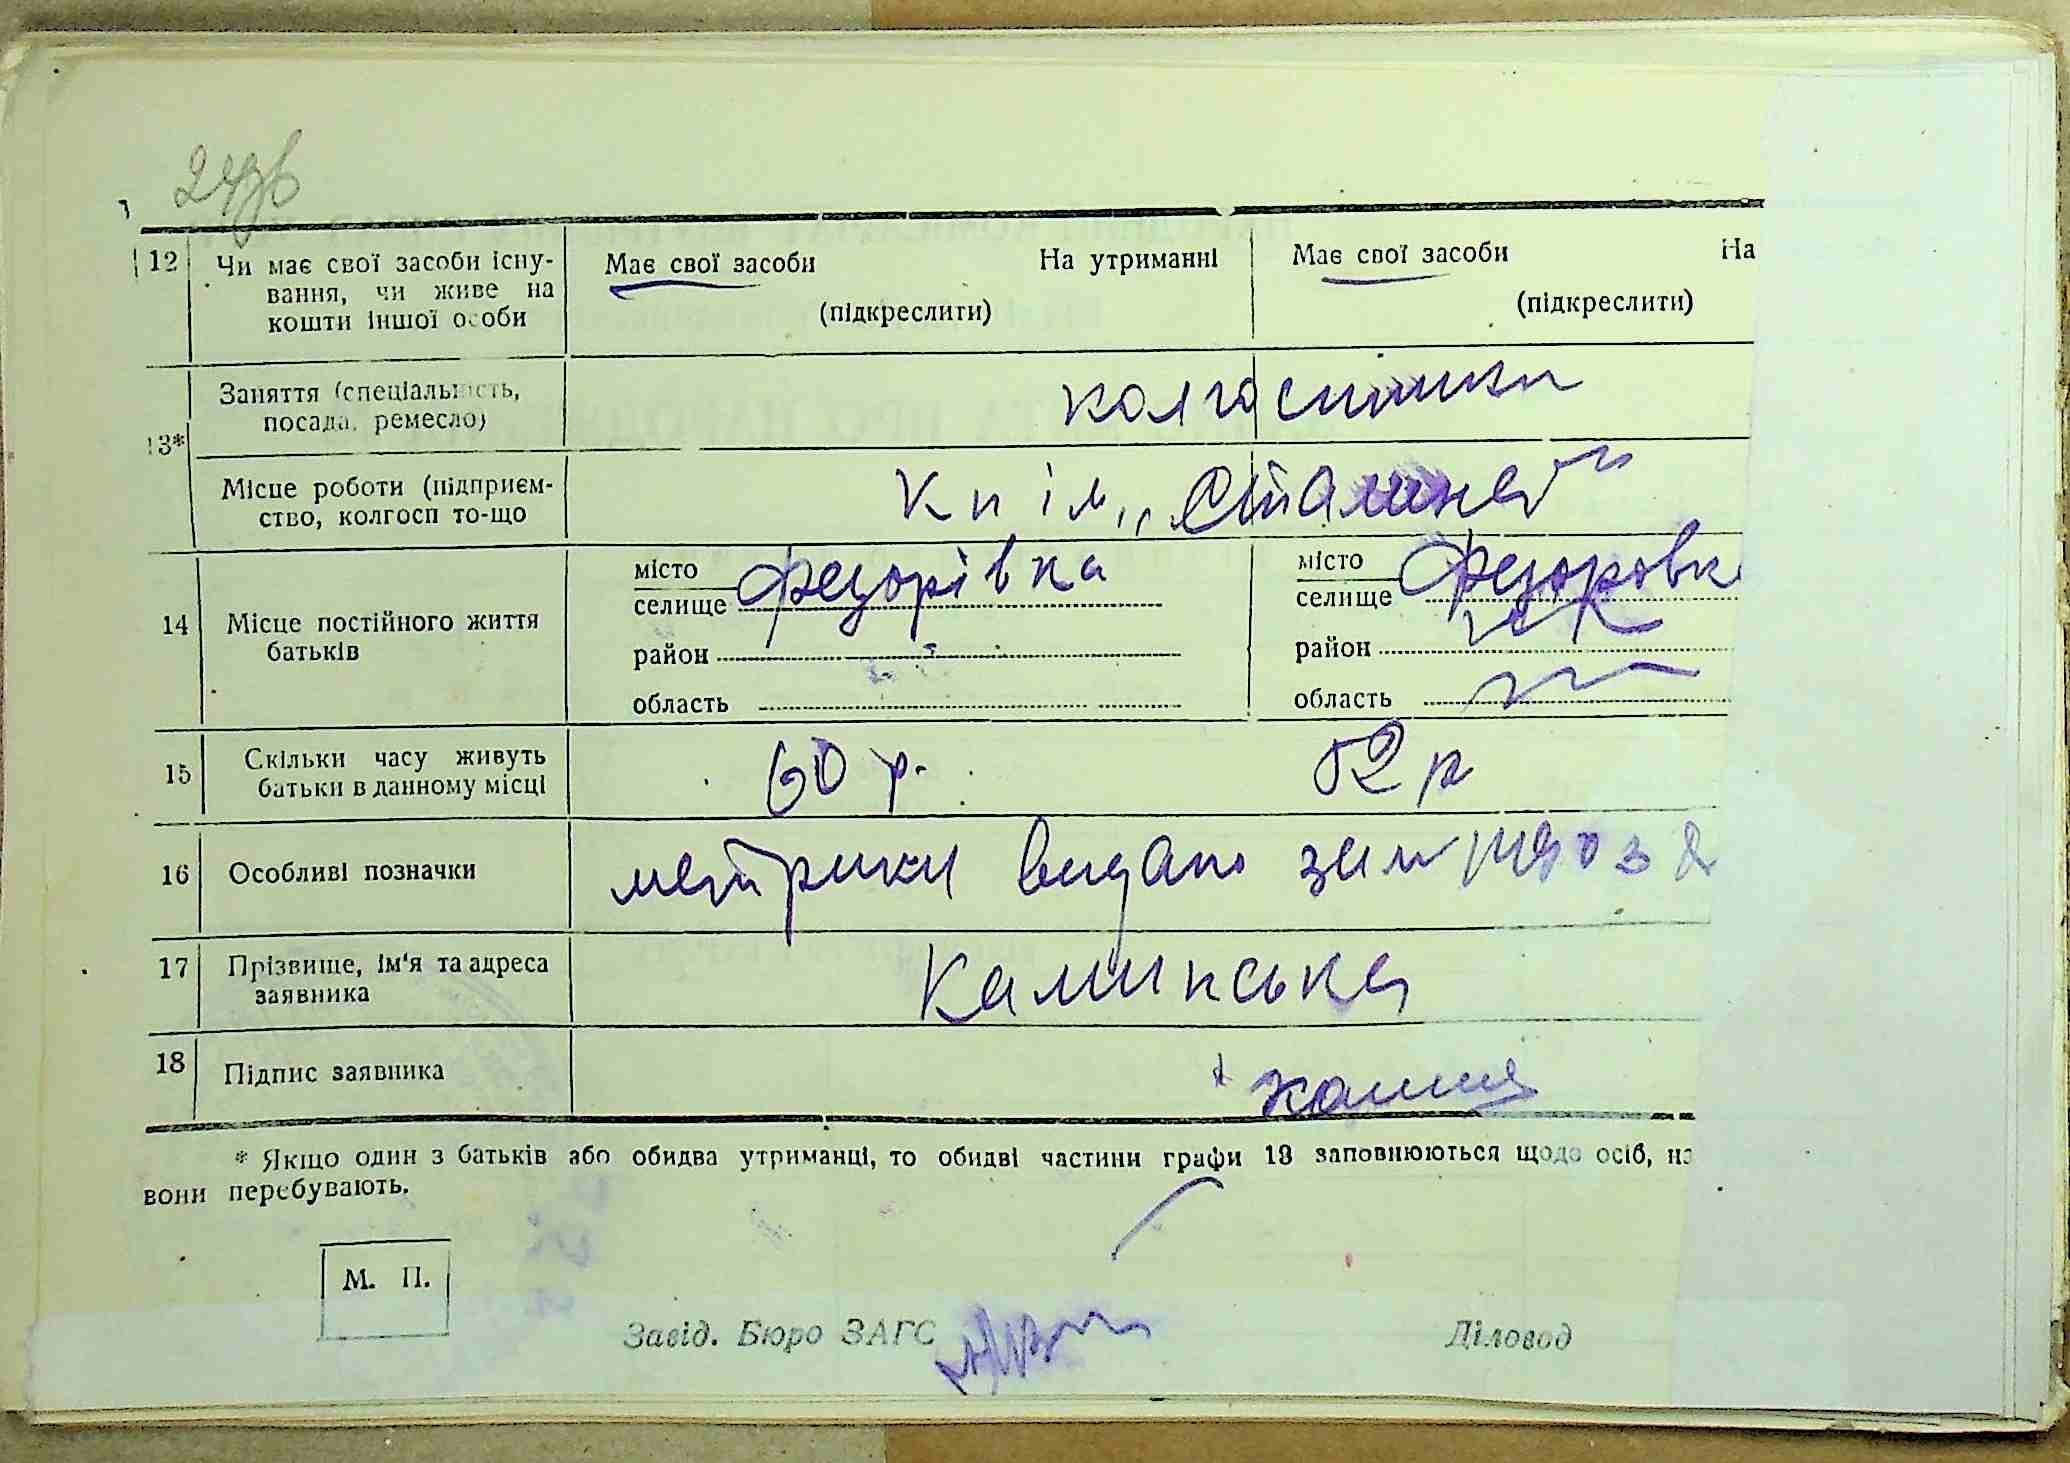 12 Чи має свої засоби існу- Має свої засоби На утриманні Має свої засоби На
вання, чи живе на
кошти іншої особи (підкреслити) (підкреслити)
13* Заняття (спеціальність, колгоспники
посада, ремесло)
Місце роботи (підприєм- К п ім. „Сталина"
ство, колгосп то-що
14 Місце постійного життя
батьків
місто
селище Федорівка
район
область
місто
селище Федоровк
район
область
15 Скільки часу живуть 60 р. 52 р
батьки в данному місці
16 Особливі позначки метрики видано за
17 Прізвище, ім'я та адреса Каминська
заявника
18 Підпис заявника
* Якщо один з батьків або обидва утриманці, то обидві частини графи 13 заповнюються щодо осіб, на
вони перебувають.
М. П.
Завід. Бюро ЗАГС Діловод